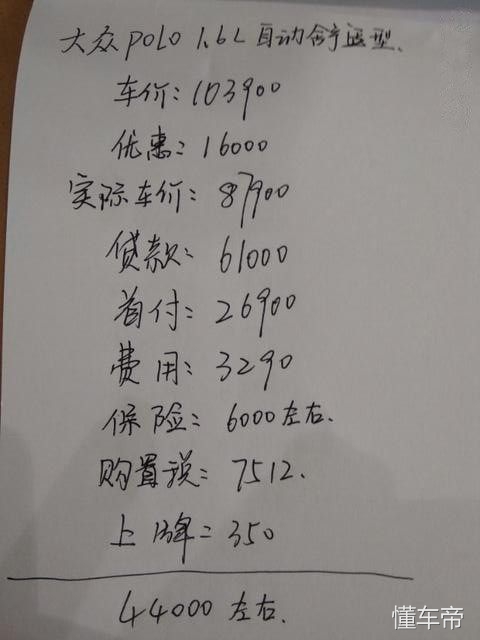 大众POLO 1.6L 自动舒适型.
车价: 103900
优惠: 16000
实际车价: 87900
贷款: 61000
首付: 26900
费用: 3290
保险: 6000左右.
购置税: 7512.
上牌: 350
44000 左右.
懂车帝